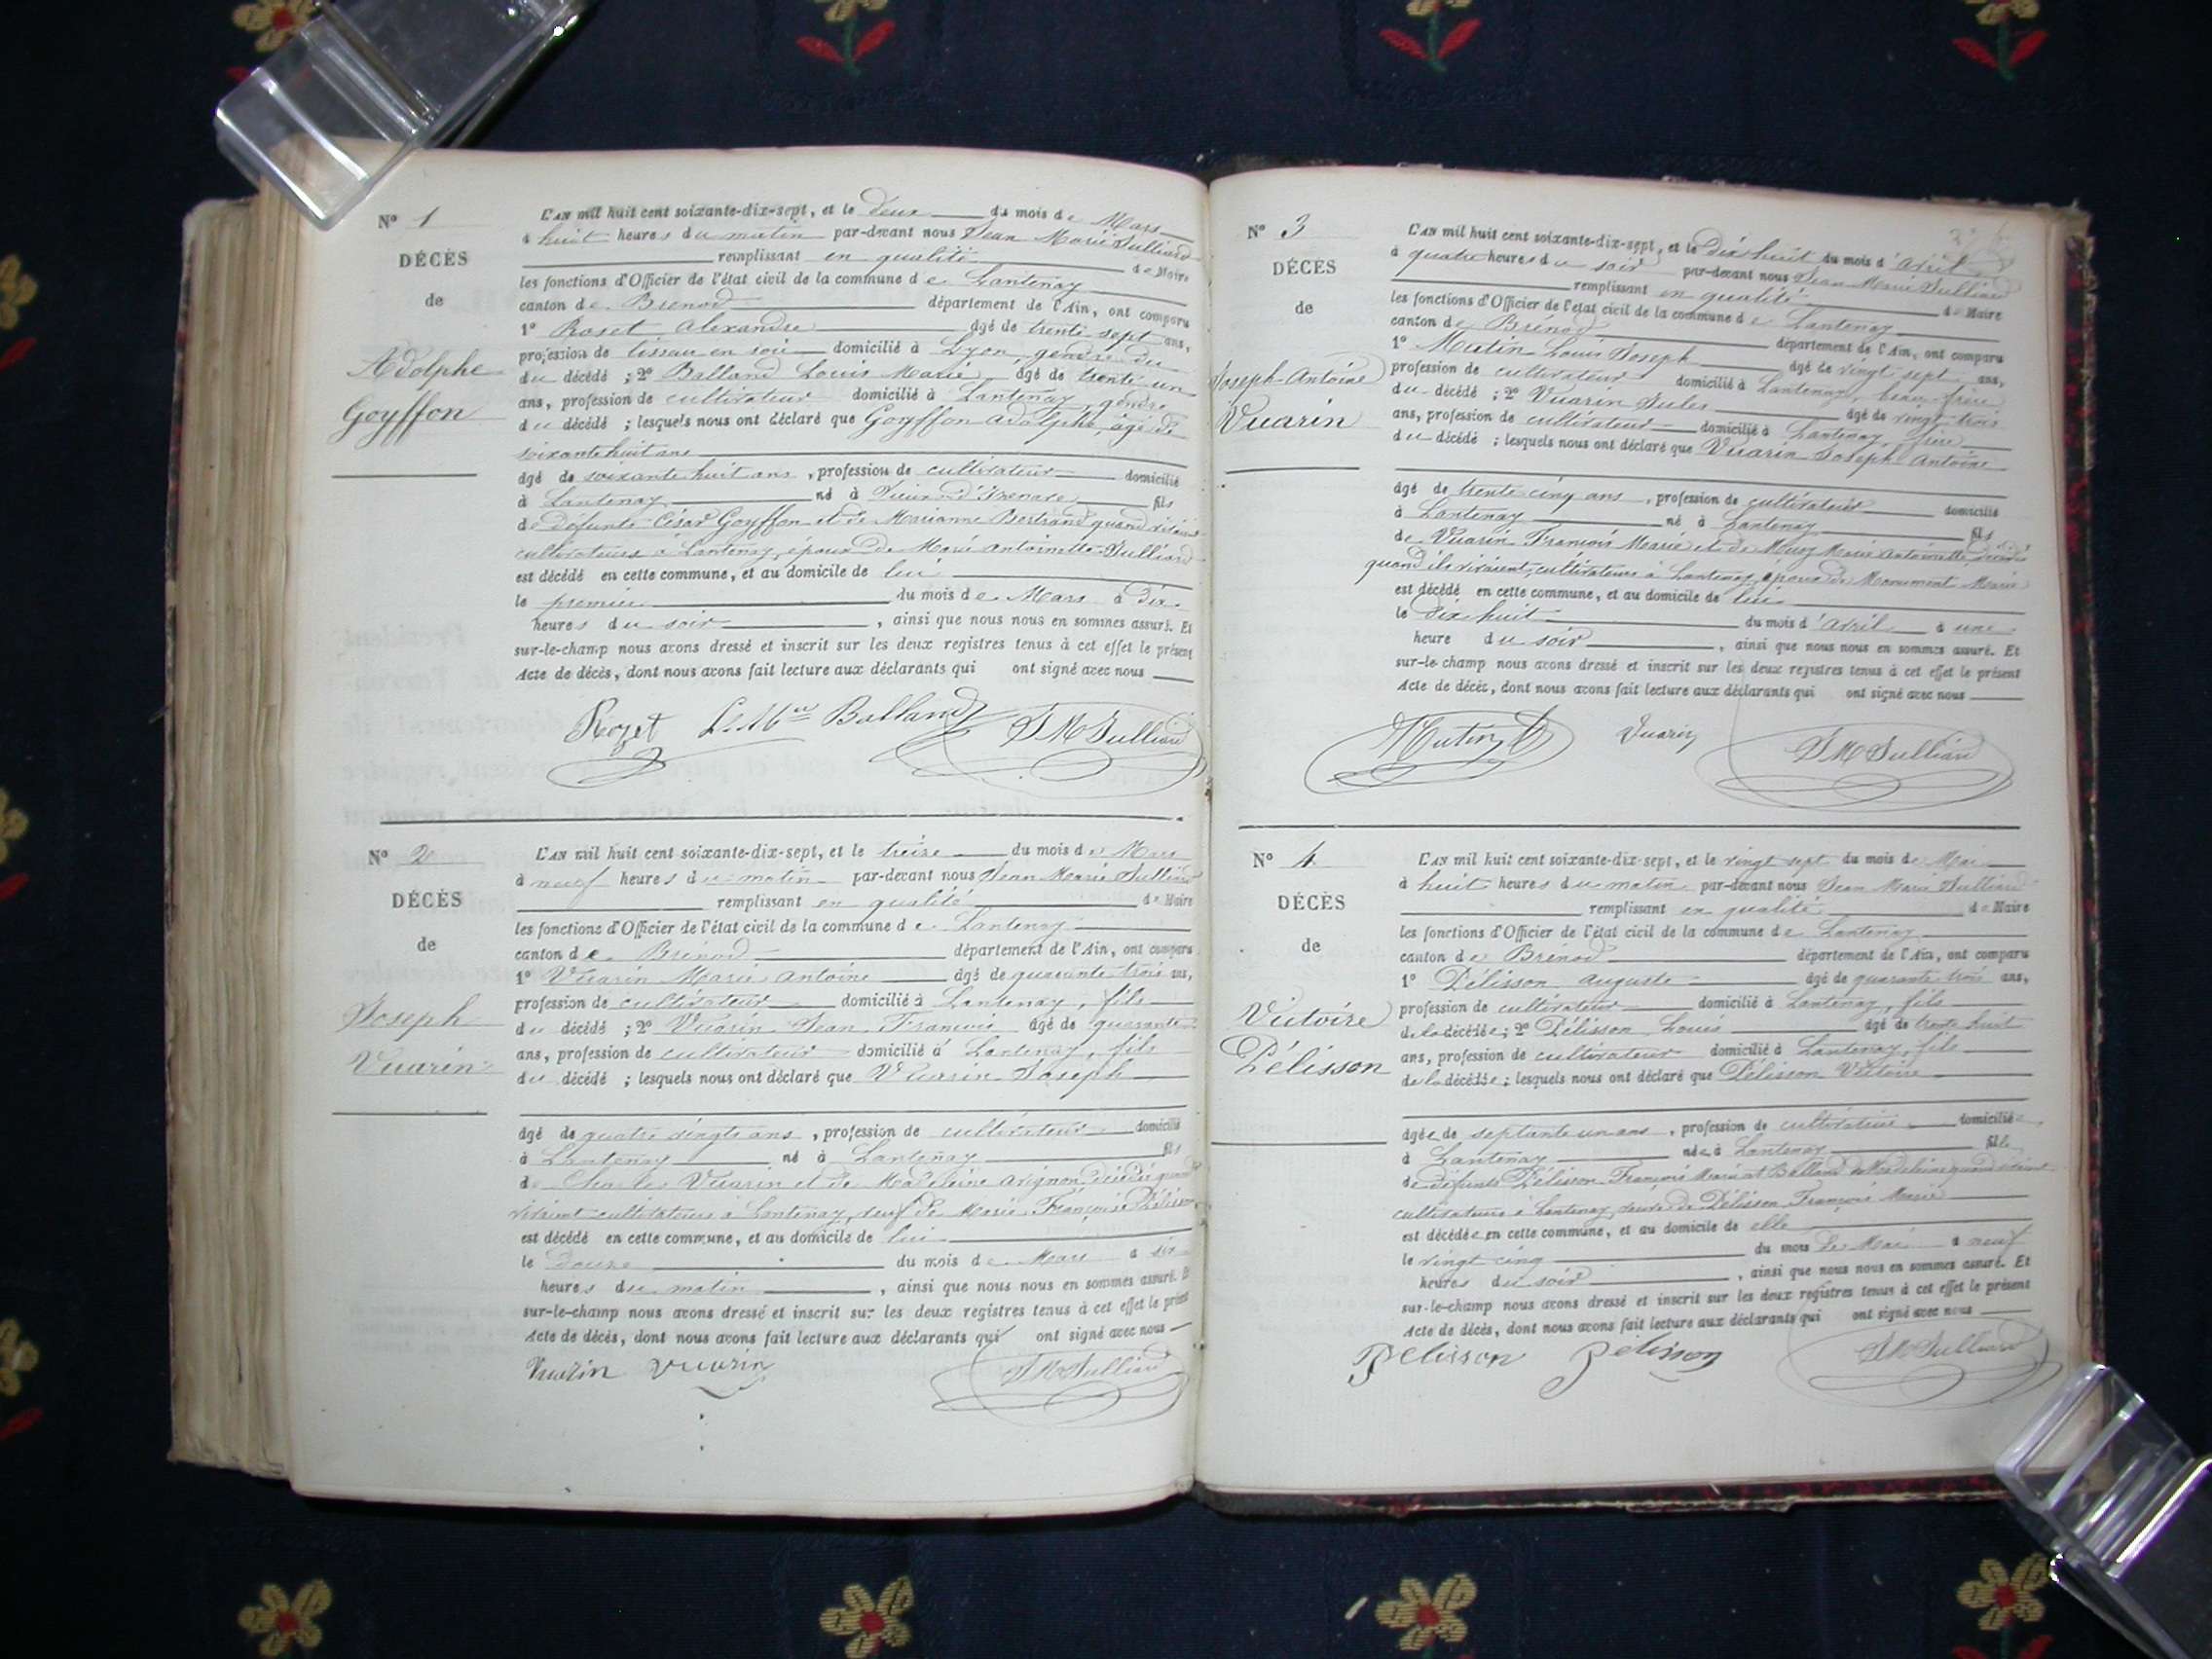 N° 1
DÉCÈS
de
Adolphe
Goyffon
L'AN mil huit cent soixante-dix-sept, et le deux du mois de Mars
à huit heures du matin par-devant nous Jean Marie Julliard
remplissant en qualité de Maire
les fonctions d'Officier de l'état civil de la commune de Lantenay
canton de Brenod département de l'Ain, ont comparu
1° Roset Alexandre âgé de trente sept ans,
profession de tisseur en soie domicilié à Lyon, gendre du
du décédé ; 2° Balland Louis Marie âgé de trente un
ans, profession de cultivateur domicilié à Lantenay, gendre
du décédé ; lesquels nous ont déclaré que Goyffon Adolphe, âgé de
soixante huit ans
âgé de soixante huit ans, profession de cultivateur domicilié
à Lantenay né à Vieu d'Izenave fils
de défunts César Goyffon et de Marianne Bertrand quand vivaient
cultivateurs à Lantenay, époux de Marie Antoinette Julliard
est décédé en cette commune, et au domicile de lui
le premier du mois de Mars à dix
heures du soir, ainsi que nous nous en sommes assuré. Et
sur-le-champ nous avons dressé et inscrit sur les deux registres tenus à cet effet le présent
Acte de décès, dont nous avons fait lecture aux déclarants qui ont signé avec nous
Rozet L. Mie Balland J M Julliard
N° 2
DÉCÈS
de
Joseph
Vuarin
L'AN mil huit cent soixante-dix-sept, et le treize du mois de Mars
à neuf heures du matin par-devant nous Jean Marie Julliard
remplissant en qualité de Maire
les fonctions d'Officier de l'état civil de la commune de Lantenay
canton de Brénod département de l'Ain, ont comparu
1° Vuarin Marie Antoine âgé de quarante trois ans,
profession de cultivateur domicilié à Lantenay, fils
du décédé ; 2° Vuarin Jean François âgé de quarante
ans, profession de cultivateur domicilié à Lantenay, fils
du décédé ; lesquels nous ont déclaré que Vuarin Joseph
âgé de quatre vingts ans, profession de cultivateur domicilié
à Lantenay né à Lantenay fils
de Charles Vuarin et de Madeleine Avignon décédés quand
vivaient cultivateurs à Lantenay, veuf de Marie Françoise Pélisson
est décédé en cette commune, et au domicile de lui
le douze du mois de Mars à six
heures du matin, ainsi que nous nous en sommes assuré. Et
sur-le-champ nous avons dressé et inscrit sur les deux registres tenus à cet effet le présent
Acte de décès, dont nous avons fait lecture aux déclarants qui ont signé avec nous
Vuarin Vuarin J M Julliard
N° 3
DÉCÈS
de
Joseph-Antoine
Vuarin
L'AN mil huit cent soixante-dix-sept, et le dix huit du mois d'Avril
à quatre heures du soir par-devant nous Jean Marie Julliard
remplissant en qualité de Maire
les fonctions d'Officier de l'état civil de la commune de Lantenay
canton de Brénod département de l'Ain, ont comparu
1° Mutin Louis Joseph âgé de vingt sept ans,
profession de cultivateur domicilié à Lantenay, beau-frère
du décédé ; 2° Vuarin Jules âgé de vingt trois
ans, profession de cultivateur domicilié à Lantenay, frère
du décédé ; lesquels nous ont déclaré que Vuarin Joseph Antoine
âgé de trente cinq ans, profession de cultivateur domicilié
à Lantenay né à Lantenay fils
de Vuarin François Marie et de Marie Antoinette, décédés
quand ils vivaient, cultivateurs à Lantenay, époux de Monument Marie
est décédé en cette commune, et au domicile de lui
le dix huit du mois d'Avril à une
heure du soir, ainsi que nous nous en sommes assuré. Et
sur-le-champ nous avons dressé et inscrit sur les deux registres tenus à cet effet le présent
Acte de décès, dont nous avons fait lecture aux déclarants qui ont signé avec nous
Mutin L Vuarin J M Julliard
N° 4
DÉCÈS
de
Victoire
Pélisson
L'AN mil huit cent soixante-dix-sept, et le vingt sept du mois de Mai
à huit heures du matin par-devant nous Jean Marie Julliard
remplissant en qualité de Maire
les fonctions d'Officier de l'état civil de la commune de Lantenay
canton de Brénod département de l'Ain, ont comparu
1° Pélisson Auguste âgé de quarante trois ans,
profession de cultivateur domicilié à Lantenay, fils
de la décédée ; 2° Pélisson Louis âgé de trente huit
ans, profession de cultivateur domicilié à Lantenay, fils
de la décédée ; lesquels nous ont déclaré que Pélisson Victoire
âgée de septante un ans, profession de cultivatrice domiciliée
à Lantenay née à Lantenay fille
de défunts Pélisson François Marie et Balland Madeleine quand vivaient
cultivateurs à Lantenay, veuve de Pélisson François Marie
est décédée en cette commune, et au domicile de elle
le vingt cinq du mois de Mai à neuf
heures du soir, ainsi que nous nous en sommes assuré. Et
sur-le-champ nous avons dressé et inscrit sur les deux registres tenus à cet effet le présent
Acte de décès, dont nous avons fait lecture aux déclarants qui ont signé avec nous
Pelisson Pelisson J M Julliard